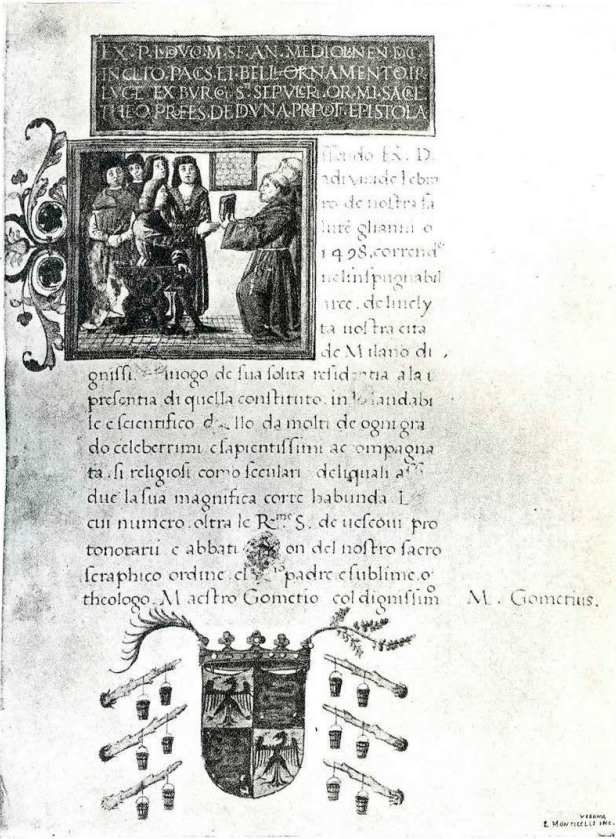 EX. P. LDVO. M. SF. AN. MEDIOLNEN. DC.
INCLITO. PACS. ET. BELL. ORNAMENTO. FR.
LVCE. EX. BVR. Cͥ. Sͥ. SEPVLCR. OR. MI. SACRE
THEO. PROFES. DE DVNA. PRPOT. EPISTOLA
Ex. D.
de nostra sa
lute gliani o
1498. correnda
nelinspugnabil
arce. de linely
ta nostra cita
de Milano di
gnissi. luogo de sua solita residentia a la
presentia di quella constituto. in laudabi
le e scientifico duello da molti de ogni gra
do celeberrimi e sapientissimi acompagna
ta. si religiosi como seculari deliquali assi
due la sua magnifica corte habunda
cui numero. oltra le R.me S. de uescoui pro
tonotarii e abbati on del nostro sacro
seraphico ordine. padre e sublime. o
theologo. Maestro Gometio col dignissim M. Gometius.
VERONA
L MONTICELLI INC.